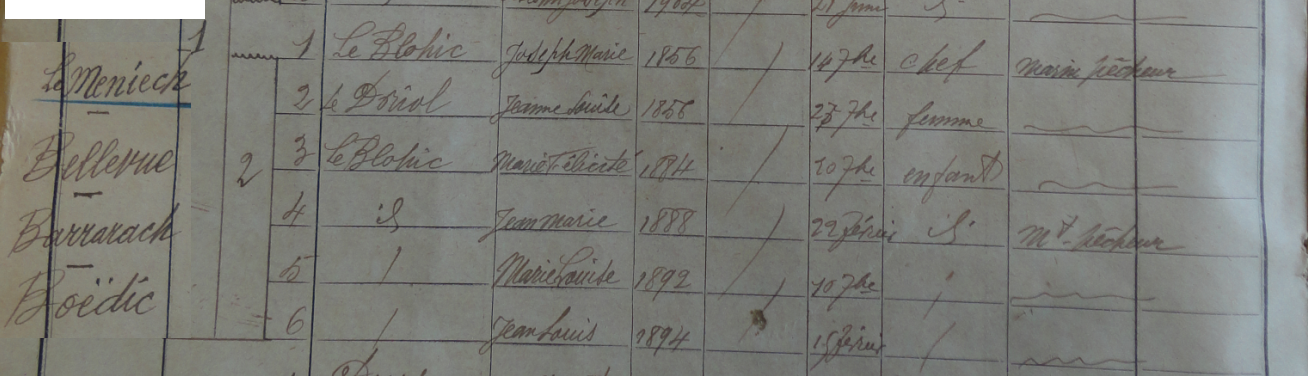 1 1 Le Blohic Joseph Marie 1856 / 14 7bre chef marin pêcheur
Le Meniech
2 Le Douol Jeanne Louise 1856 / 25 7bre femme
Bellevue 2 3 Le Blohic Marie Félicité 1884 / 10 7bre enfant
4 id Jean Marie 1888 / 22 février id mt pêcheur
Barrarach
5 / Marie Louise 1892 / 10 7bre /
Boëdic
6 / Jean Louis 1894 / 15 février /